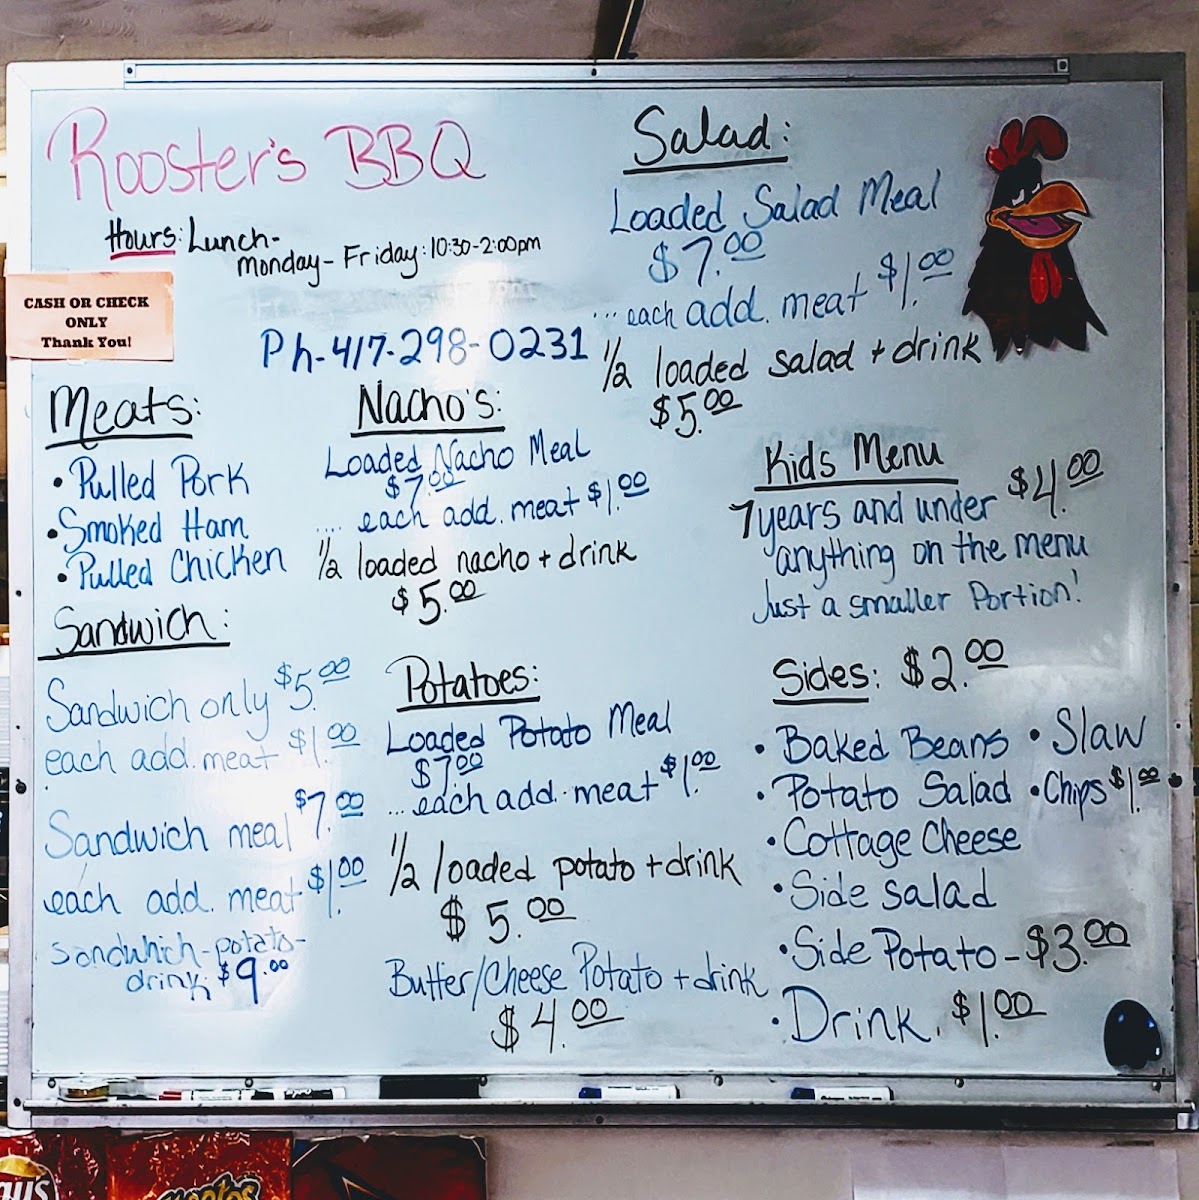 Rooster's BBQ
Hours: Lunch-
Monday - Friday: 10:30-2:00pm
CASH OR CHECK
ONLY
Thank You!
Ph-417-298-0231
Meats:
• Pulled Pork
• Smoked Ham
• Pulled Chicken
Sandwich:
Sandwich only $5.00
each add. meat $1.00
Sandwich meal $7.00
each add. meat $1.00
Sandwhich-potato-
drink: $9.00
Nacho's:
Loaded Nacho Meal
$7.00
.... each add. meat $1.00
1/2 loaded nacho + drink
$5.00
Potatoes:
Loaded Potato Meal
$7.00
... each add. meat $1.00
1/2 loaded potato + drink
$5.00
Butter/Cheese Potato + drink
$4.00
Salad:
Loaded Salad Meal
$7.00
... each add. meat $1.00
1/2 loaded salad + drink
$5.00
Kids Menu
7 years and under $4.00
anything on the menu
Just a smaller Portion!
Sides: $2.00
• Baked Beans • Slaw
• Potato Salad • Chips $1.00
• Cottage Cheese
• Side salad
• Side Potato - $3.00
• Drink. $1.00